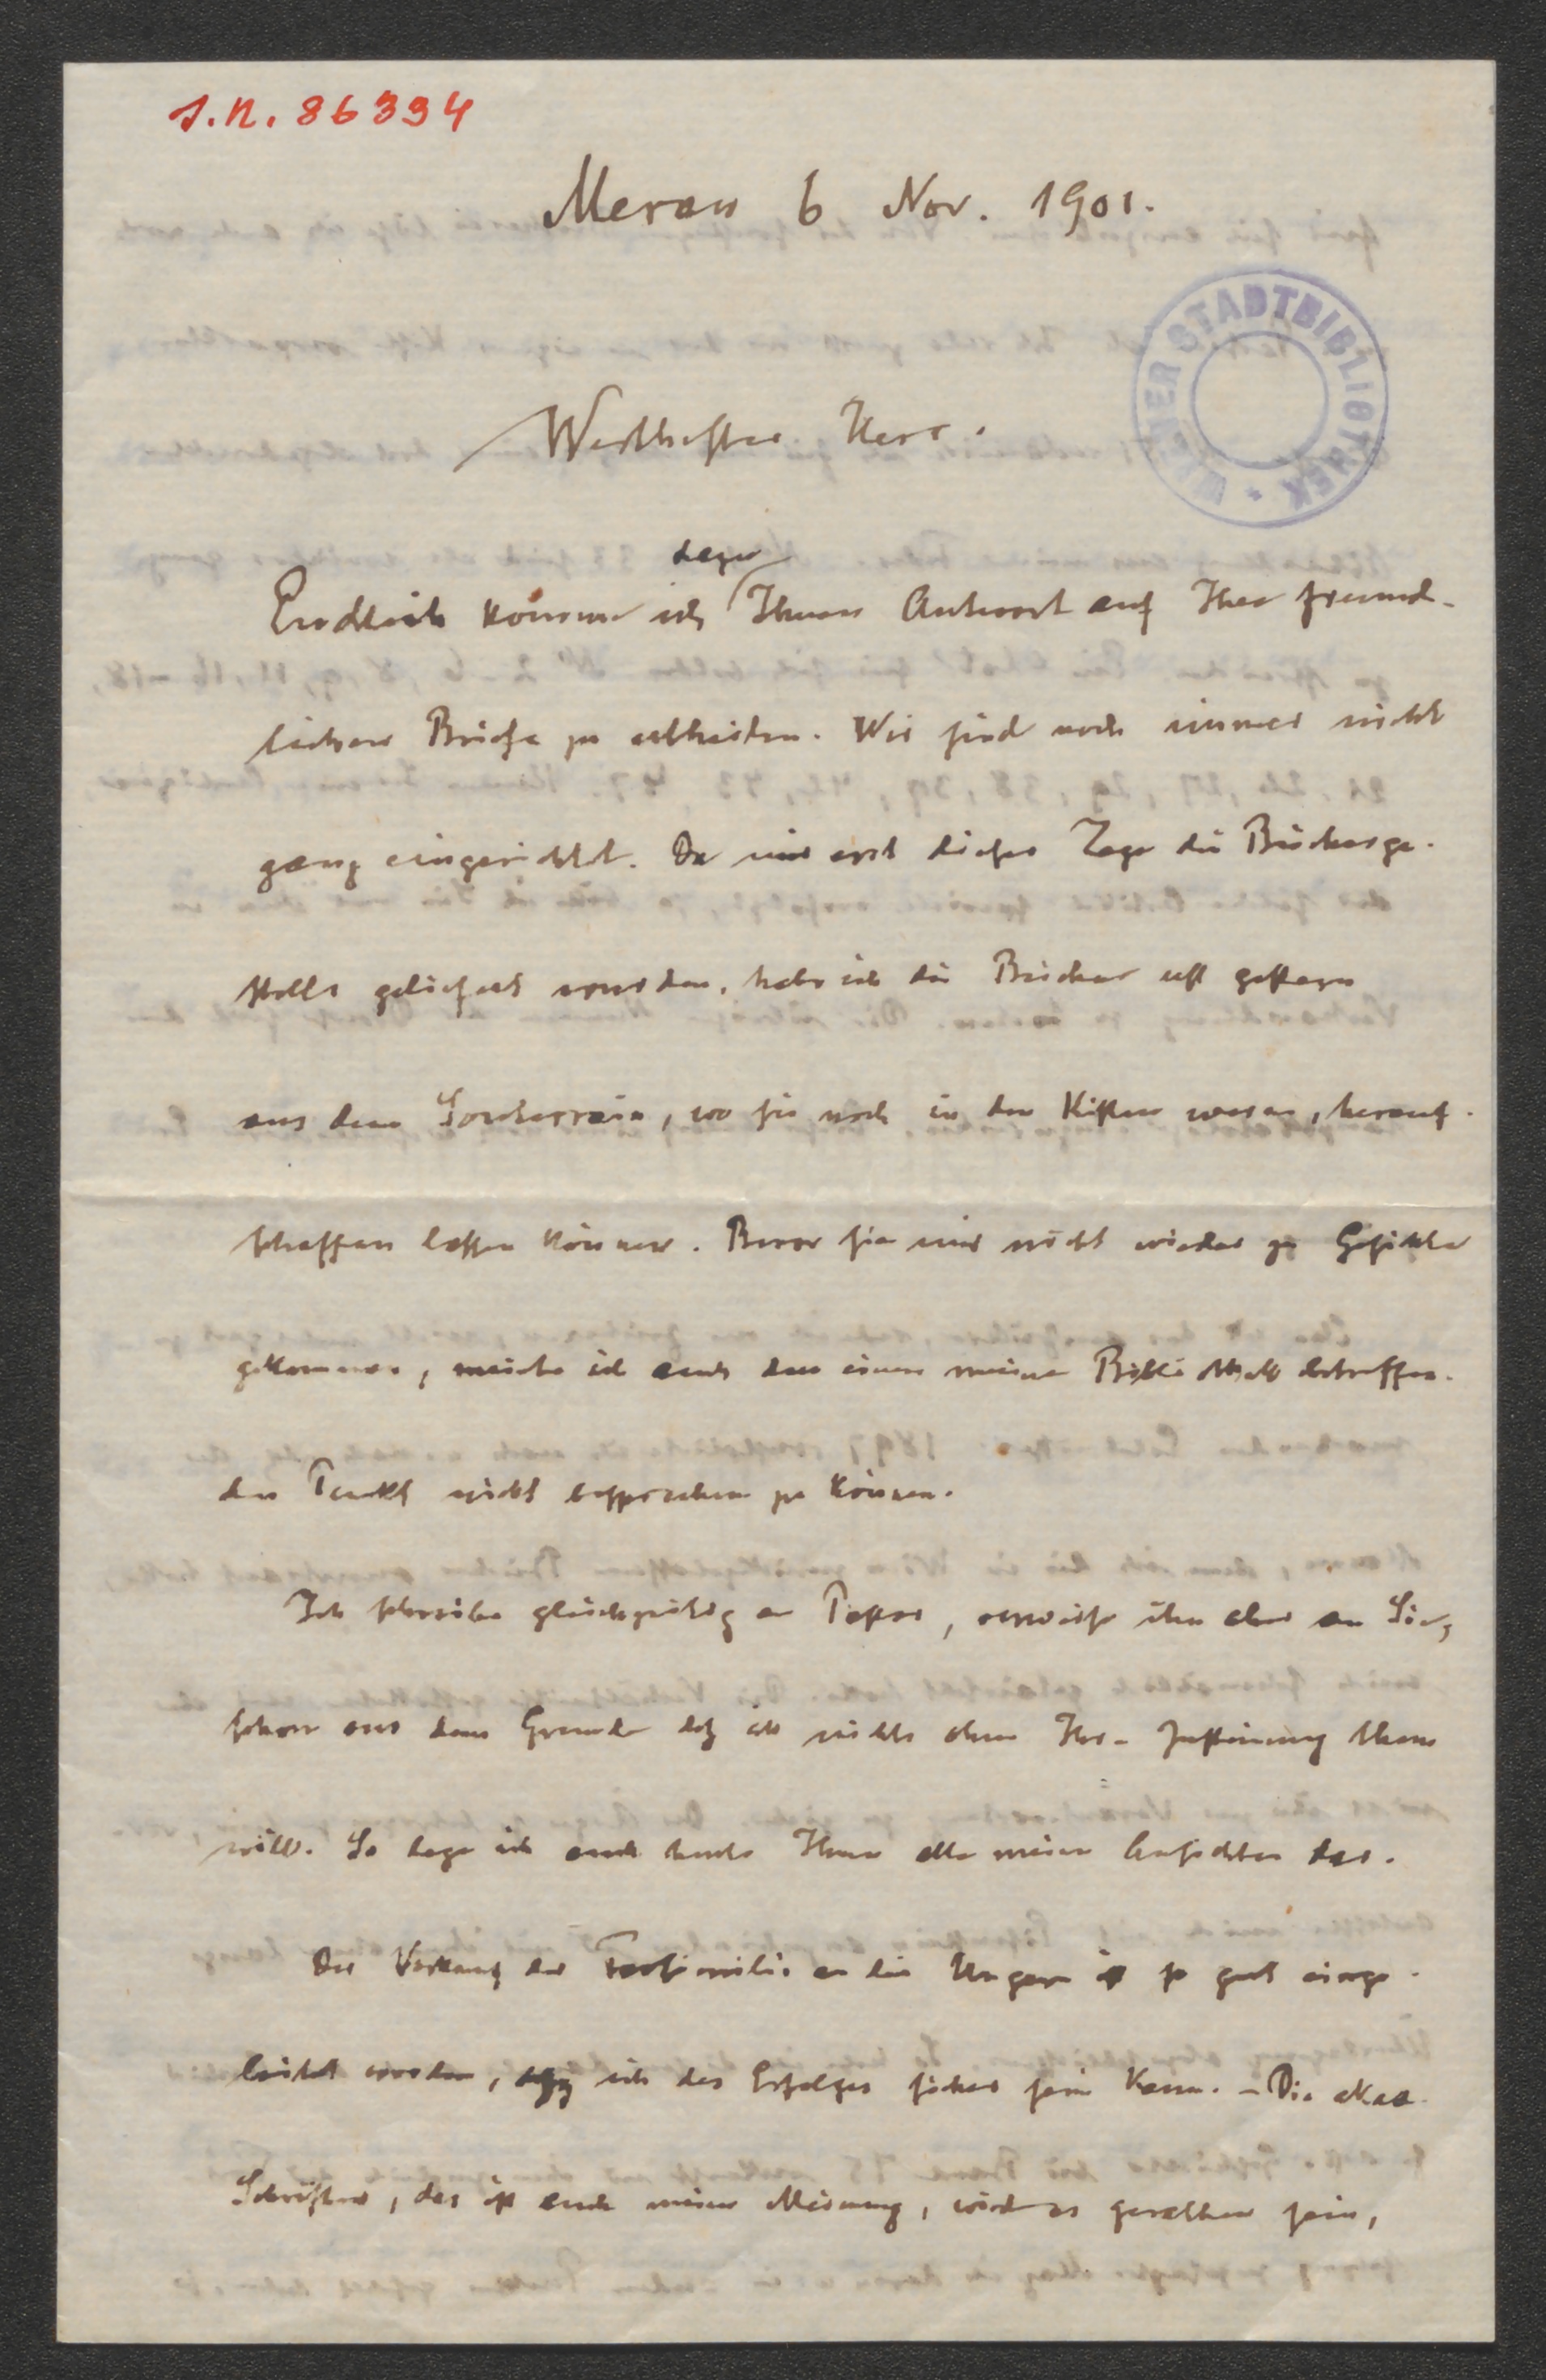 J.N. 86394
Meran 6 Nov. 1901.
WIENER STADTBIBLIOTHEK *
Werthester Herr.
dazu
Endlich komme ich Ihnen Antwort auf Ihre freund-
lichen Briefe zu ertheilen. Wir sind noch immer nicht
ganz eingerichtet. Da mir erst dieser Tage die Bücherge-
stelle geliefert wurden, habe ich die Bücher erst gestern
aus dem Souterrain, wo sie noch in den Kisten waren, herauf-
schaffen lassen können. Bevor sie mir nicht wieder zu Gesichte
gekommen, meinte ich auch den einen meine Bibliothek betreffen-
den Punkt nicht besprechen zu können.
Ich schreibe gleichzeitig an Pastor, verweise ihn aber an Sie,
schon aus dem Grunde daß ich nichts ohne Ihre Zustimmung thun
will. So lege ich auch heute Ihnen alle meine Ansichten dar.
Der Verkauf der Facsimilia an die Ungarn ist so gut einge-
leitet worden, daß ich des Erfolges sicher sein kann. – Die akad.
Schriften, das ist auch meine Meinung, wird es gerathen sein,